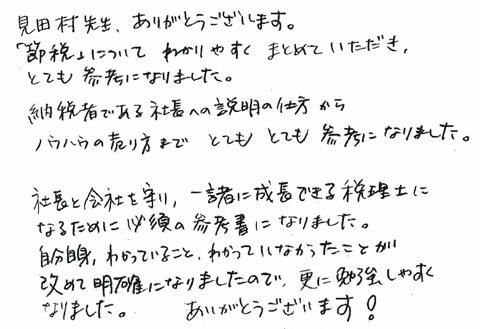 見田村先生、ありがとうございます。
「節税」について わかりやすく まとめていただき、
とても 参考になりました。
納税者である社長への説明の仕方から
ノウハウの売り方まで とても とても 参考になりました。
社長と会社を守り、一諸に成長できる税理士に
なるために必須の参考書になりました。
自分自身、わかっていること、わかっていなかったことが
改めて明確になりましたので、更に勉強しやすく
なりました。 ありがとうございます!